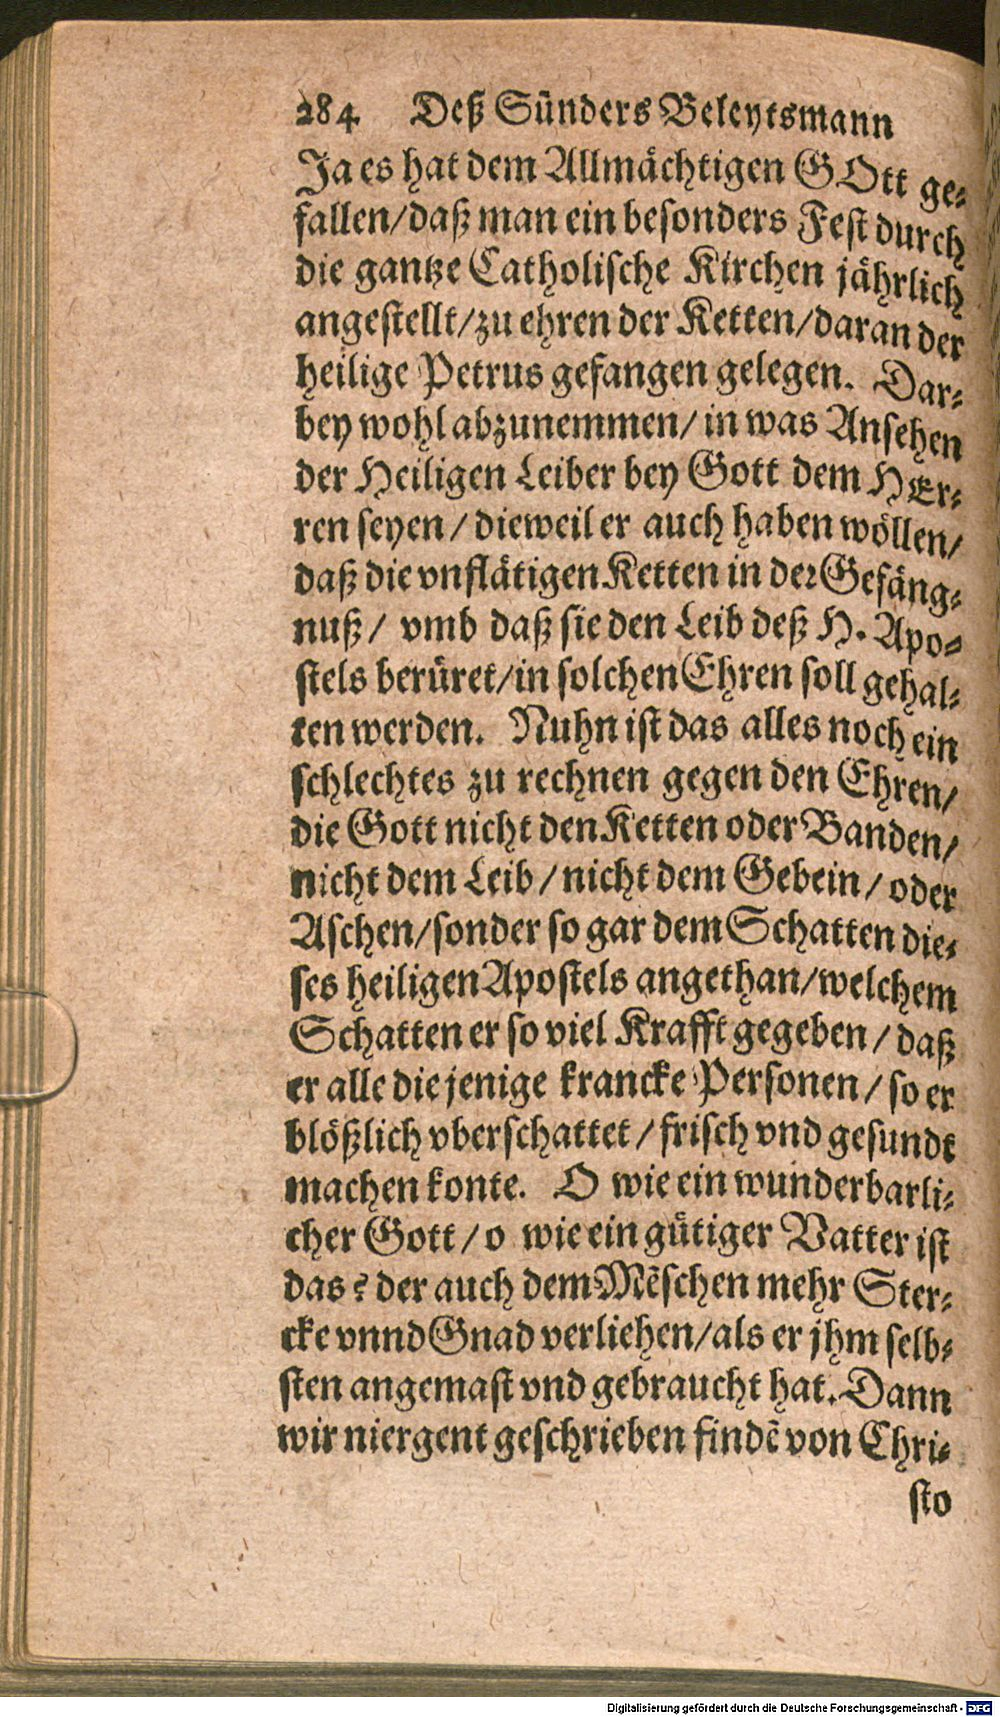 284 Deß Sünders Beleytsmann
Ja es hat dem Allmächtigen GOtt ge-
fallen/daß man ein besonders Fest durch
die gantze Catholische Kirchen jährlich
angestellt/zu ehren der Ketten/daran der
heilige Petrus gefangen gelegen. Dar-
bey wohl abzunemmen/ in was Ansehen
der Heiligen Leiber bey Gott dem HEr-
ren seyen/ dieweil er auch haben wöllen/
daß die vnflätigen Ketten in der Gefäng-
nuß/ vmb daß sie den Leib deß H. Apo-
stels berüret/in solchen Ehren soll gehal-
ten werden. Nuhn ist das alles noch ein
schlechtes zu rechnen gegen den Ehren/
die Gott nicht den Ketten oder Banden/
nicht dem Leib/ nicht dem Gebein/ oder
Aschen/sonder so gar dem Schatten die-
ses heiligen Apostels angethan/welchem
Schatten er so viel Krafft gegeben/ daß
er alle die jenige krancke Personen/ so er
blößlich vberschattet/ frisch vnd gesundt
machen konte. O wie ein wunderbarli-
cher Gott/ o wie ein gütiger Vatter ist
das? der auch dem Mẽschen mehr Ster-
cke vnnd Gnad verliehen/als er jhm selb-
sten angemast vnd gebraucht hat. Dann
wir niergent geschrieben findẽ von Chri-
sto
Digitalisierung gefördert durch die Deutsche Forschungsgemeinschaft - DFG